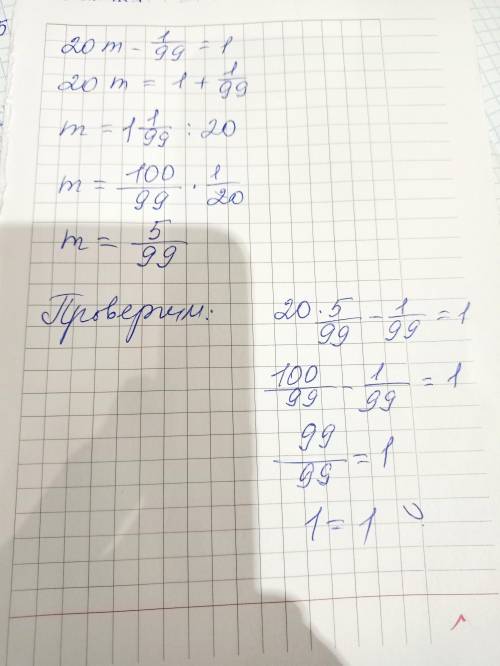 20m - 1/99 = 1
20m = 1 + 1/99
m = 1 1/99 : 20
m = 100/99 · 1/20
m = 5/99
Проверим:
20 · 5/99 - 1/99 = 1
100/99 - 1/99 = 1
99/99 = 1
1 = 1